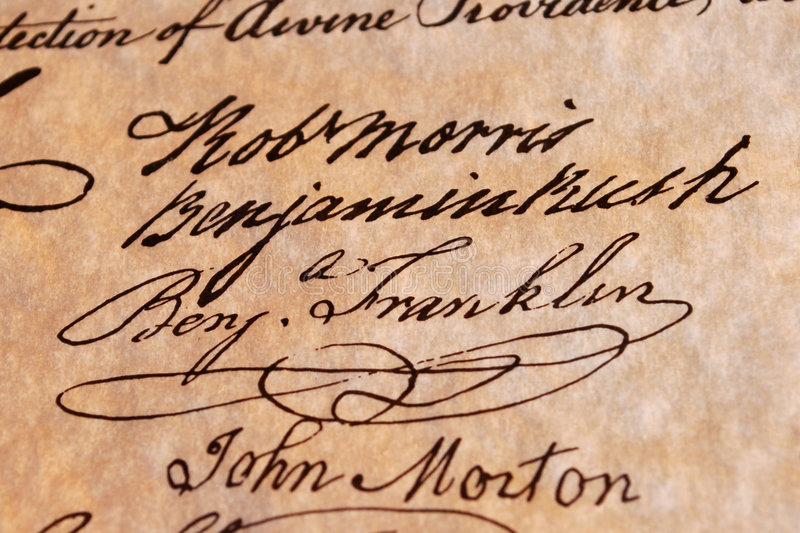 tection of divine Providence,
Robt Morris
Benjamin Rush
Benj.a Franklin
John Morton